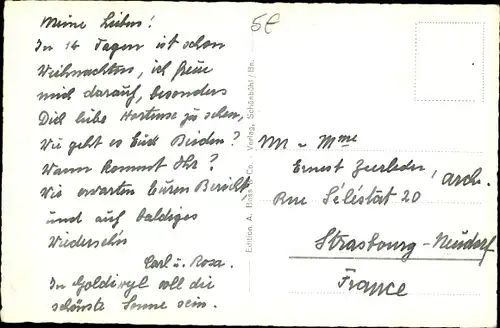 Meine Lieben!
In 14 Tagen ist schon
Weihnachten, ich freue
mich darauf, besonders
Dich liebe Hortense zu sehen,
Wie geht es Euch Beiden?
Wann kommt Ihr?
Wir erwarten Euren Bericht,
und auf baldiges
Wiedersehn
Carl u. Rosa.
In Goldiwyl soll die
schönste Sonne sein.
Edition A. Boss & Co., Verlag, Schönbühl / Bn.
M. u. Mme
Ernest Zeerleder, Arch.
Rue Sélestat 20
Strasbourg-Neudorf
France